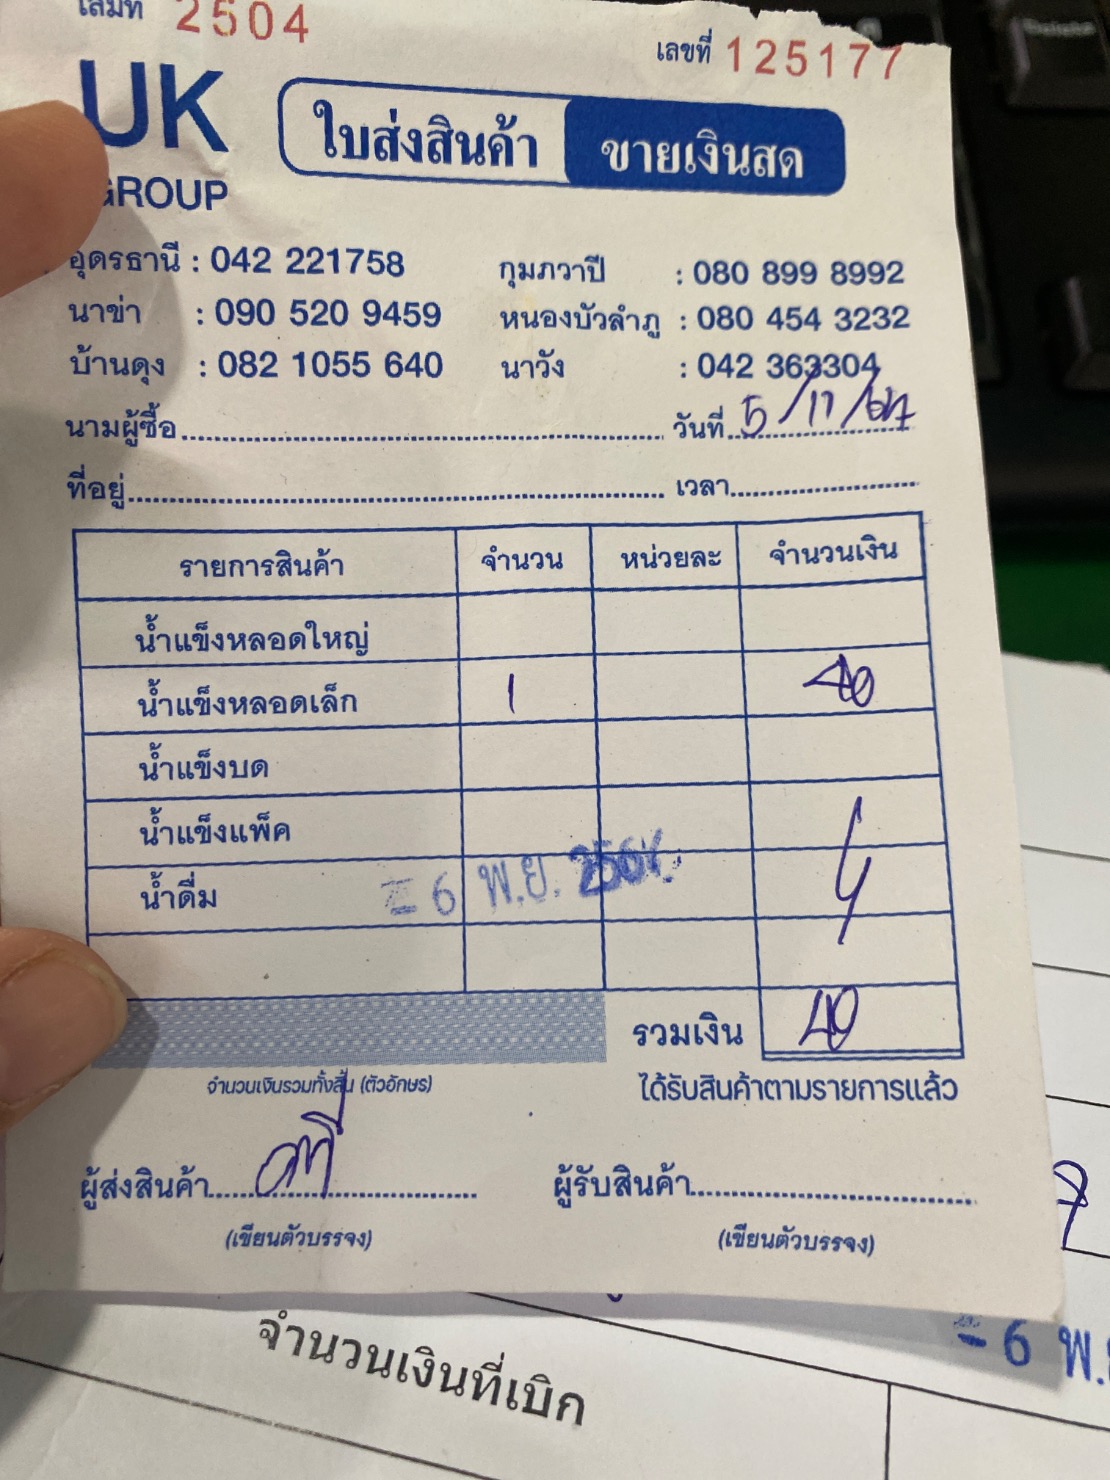 เล่มที่ 2504
เลขที่ 125177
UK
GROUP
ใบส่งสินค้า ขายเงินสด
อุดรธานี : 042 221758 กุมภวาปี : 080 899 8992
นาข่า : 090 520 9459 หนองบัวลำภู : 080 454 3232
บ้านดุง : 082 1055 640 นาวัง : 042 363304
นามผู้ซื้อ วันที่ 5/11/67
ที่อยู่ เวลา
รายการสินค้า จำนวน หน่วยละ จำนวนเงิน
น้ำแข็งหลอดใหญ่
น้ำแข็งหลอดเล็ก 1 40
น้ำแข็งบด
น้ำแข็งแพ็ค
น้ำดื่ม
- 6 พ.ย. 2567
รวมเงิน 40
จำนวนเงินรวมทั้งสิ้น (ตัวอักษร) ได้รับสินค้าตามรายการแล้ว
ผู้ส่งสินค้า ผู้รับสินค้า
(เขียนตัวบรรจง) (เขียนตัวบรรจง)
- 6 พ.
จำนวนเงินที่เบิก